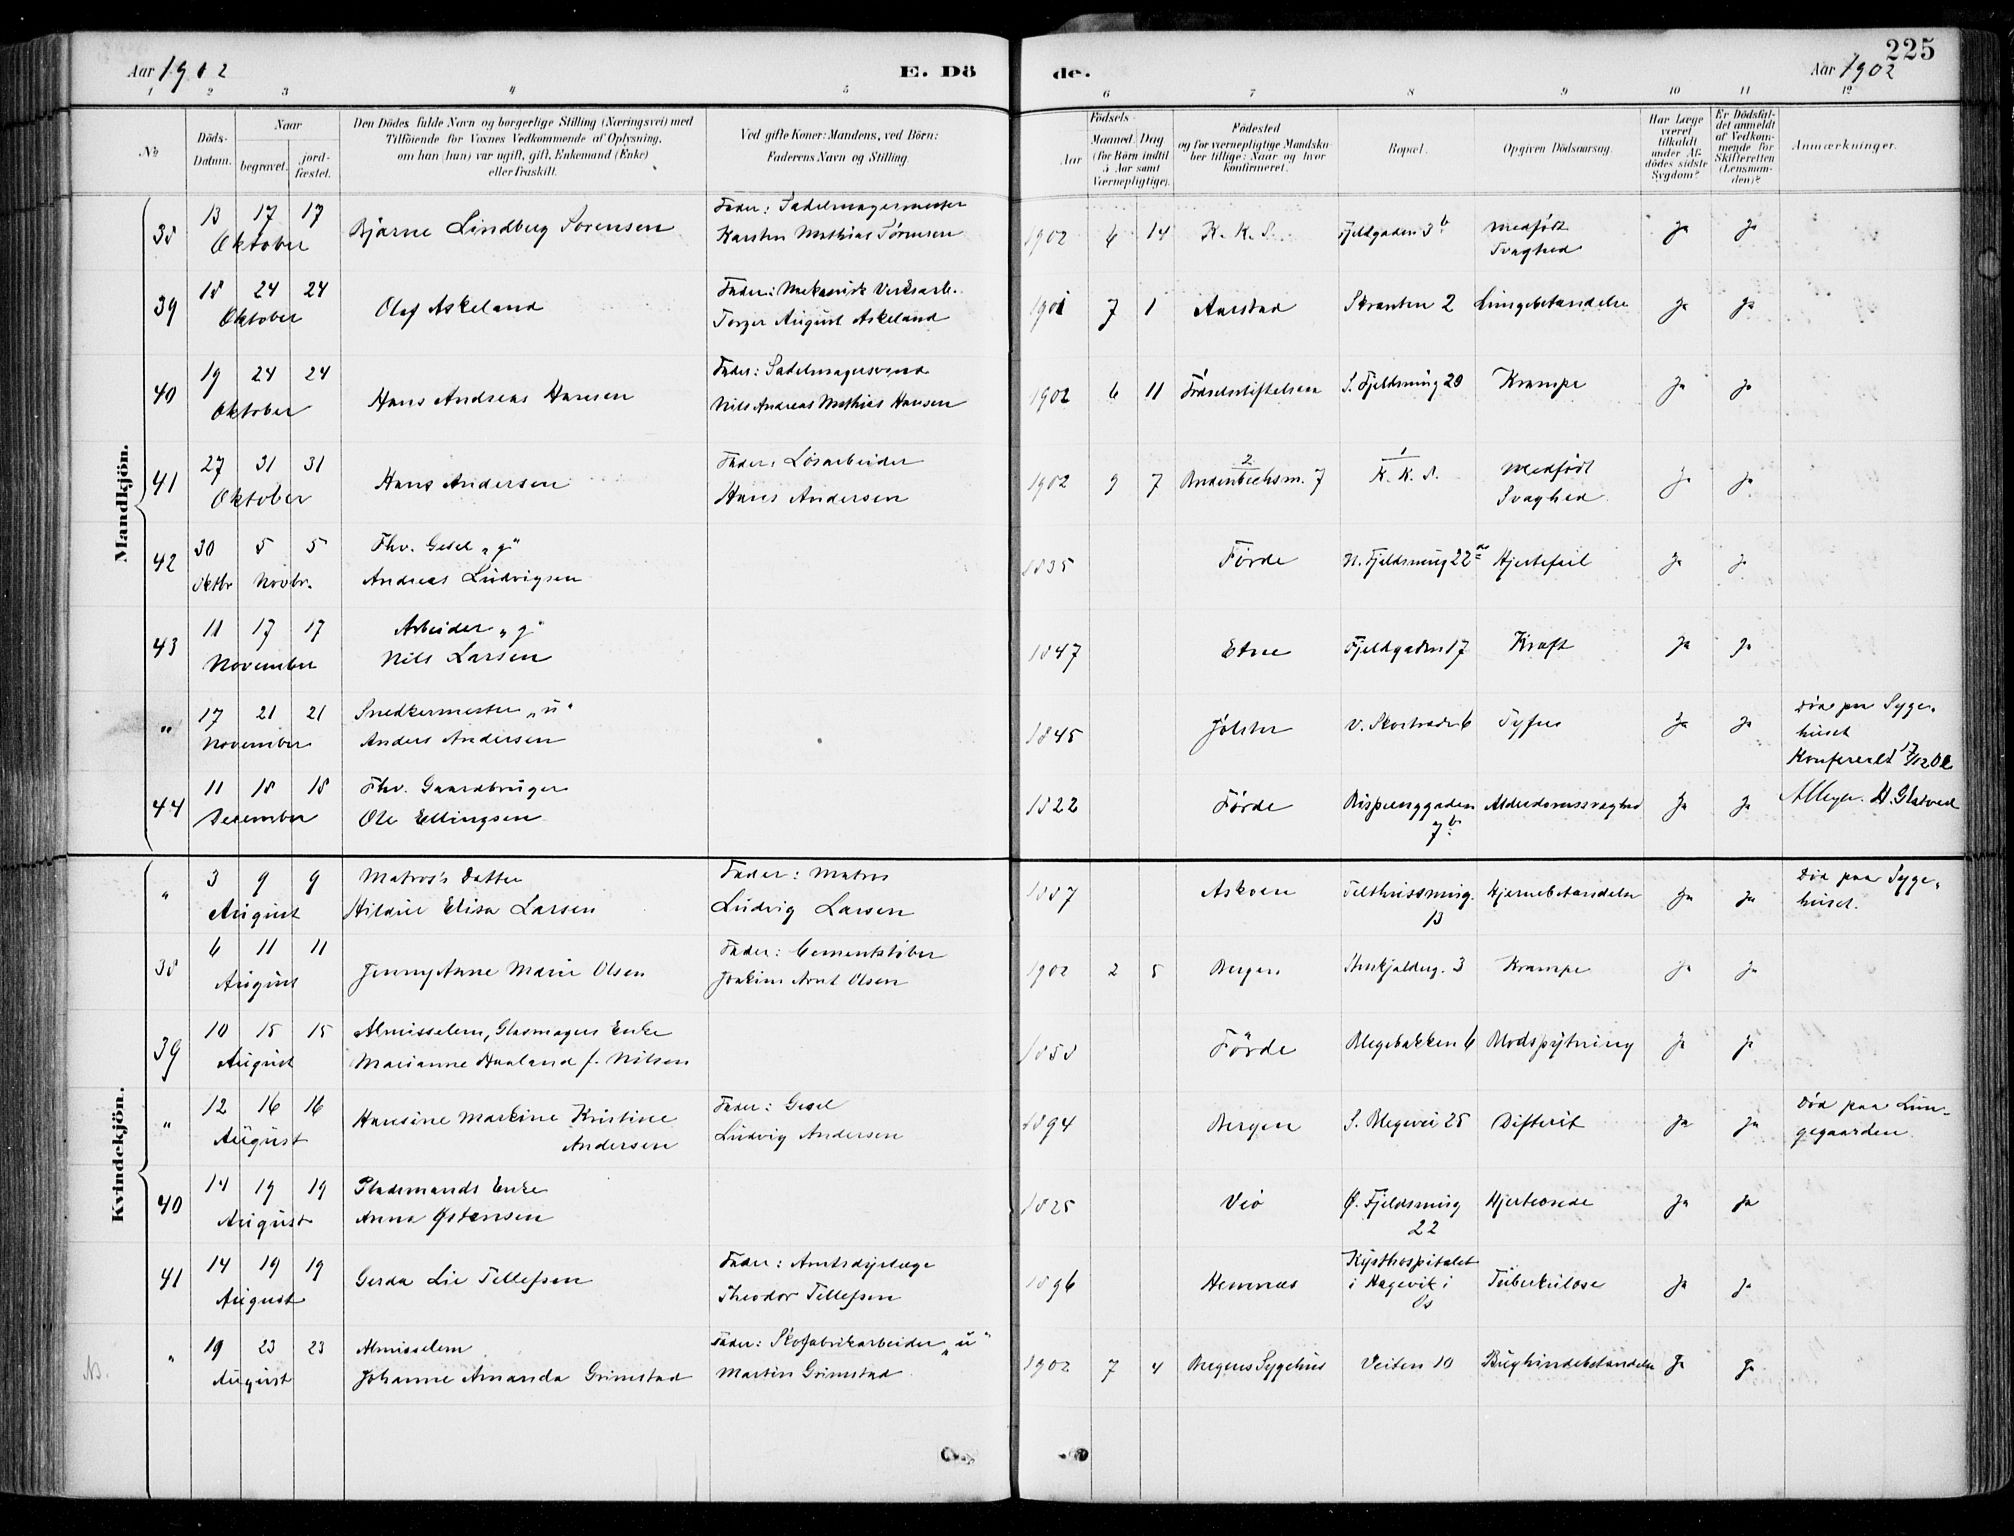 225
Aar 1902 E. Dö de. Aar 1902
1 2 3 4 5 6 7 8 9 10 11 12
No
Döds-Datum.
Naar
begravet.
jord-fæstet.
Den Dödes fulde Navn og borgerlige Stilling (Næringsvei) med
Tilföiende for Voxnes Vedkommende af Oplysning,
om han (hun) var ugift, gift, Enkemand (Enke)
eller fraskilt.
Ved gifte Koner: Mandens, ved Börn:
Faderens Navn og Stilling.
Födsels-
Aar
Maaned Dag
(for Börn indtil
5 Aar samt
Værnepligtige).
Födested
og for værnepligtige Mandska-
ber tillige: Naar og hvor
konfirmeret.
Bopæl.
Opgiven Dödsaarsag.
Har Læge
været
tilkaldt
under Af-
dödes sidste
Sygdom?
Er Dödsfal-
det anmeldt
af Vedkom-
mende for
Skifteretten
(Lensman-
den)?
Anmærkninger.
Mandkjön.
38 13 17 17 Oktober Bjarne Lindberg Sørensen Fader: Sadelmagermester Karsten Mathias Sørensen 1902 6 14 K. K. S. Fjeldgaden 3b medfødt Svaghed Ja Ja
39 18 24 24 Oktober Olaf Askeland Fader: Mekanisk Verksarb. Torger August Askeland 1901 7 1 Aarstad Skranten 2 Lungebetændelse Ja Ja
40 19 24 24 Oktober Hans Andreas Hansen Fader: Sadelmagersvend Nils Andreas Mathias Hansen 1902 6 11 Fødselsstiftelsen S. Fjeldsmug 20 Krampe Ja Ja
41 27 31 31 Oktober Hans Andersen Fader: Løsarbeider Hans Andersen 1902 9 7 2 7 1 K. K. S. medfødt Svaghed Ja Ja
42 30 5 5 Oktbr Novbr. Fhv. Gesel "g" Andreas Ludvigsen 1835 Førde N. Fjeldsmug 22 Hjertefeil Ja Ja
43 11 17 17 November Arbeider "g" Nils Larsen 1847 Etne Fjeldgaden 17 Kræft Ja Ja
" 17 21 21 November Snedkermester "u" Anders Andersen 1845 Jølster V. Skostræde 6 Tyfus Ja Ja Død paa Syge-huset
Konfereret 17/12 02
44 11 18 18 December Fhv. Gaardbruger Ole Ellingsen 1822 Førde 7b Alderdomssvaghed Ja Ja AMeyer.
Kvindekjön.
" 3 9 9 August Matros's Datter Hildur Elisa Larsen Fader: Matros Ludvig Larsen 1887 Askøen Telthussmug. 13 Hjernebetændelse Ja Ja Død paa Syge-huset.
38 6 11 11 August Jenny Anne Marie Olsen Fader: Cementstøber Joakim Arnt Olsen 1902 2 5 Bergen 3 Krampe Ja Ja
39 10 15 15 August Almisselem, Glasmagers Enke Marianne Haaland f. Nilsen 1858 Førde Blegebakken 6 Blodspytning Ja Ja
" 12 16 16 August Hansine Markine Kristine Andersen Fader: Gesel Ludvig Andersen 1894 Bergen S. Blegevei 25 Difterit Ja Ja Død paa Lun-gegaarden.
40 14 19 19 August Pladsmands Enke Anna Østensen 1825 Veø Ø. Fjeldsmug 22 Hjerteonde Ja Ja
41 14 19 19 August Gerda Lie Tellefsen Fader: Amtsdyrlæge Theodor Tellefsen 1896 Hemnæs Kysthospitalet i Hagevik i Os Tuberkulose Ja Ja
" 19 23 23 August Almisselem Johanne Amanda Grimstad Fader: Skofabrikarbeider "u" Martin Grimstad 1902 7 4 Bergens Sygehus Veiten 10 Bughindebetændelse Ja Ja